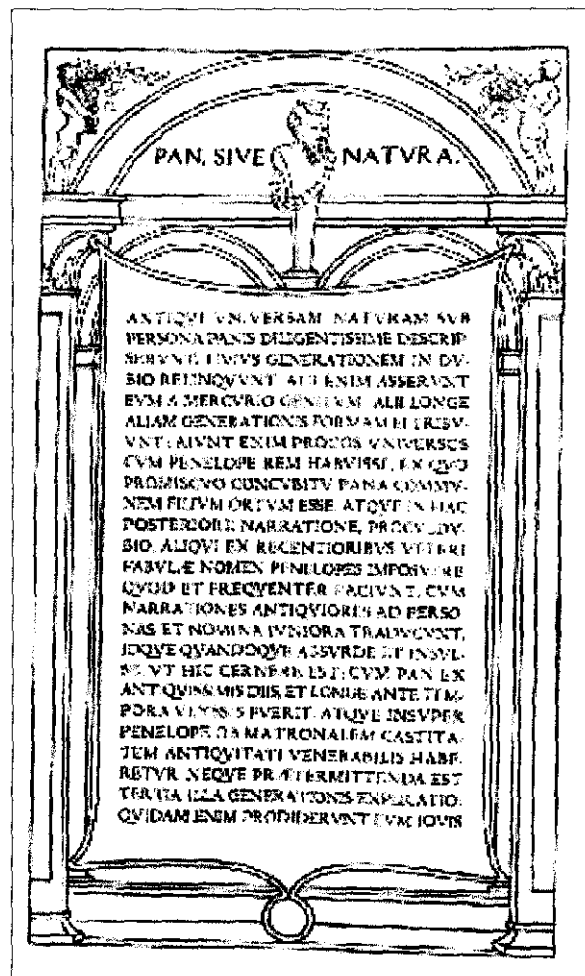 PAN, SIVE NATVRA.
ANTIQVI VNIVERSAM NATVRAM SVB
PERSONA PANIS DILIGENTISSIME DESCRIP
SERVNT. HVIVS GENERATIONEM IN DV-
BIO RELINQVVNT. ALII ENIM ASSERVNT
EVM A MERCVRIO GENITVM. ALII LONGE
ALIAM GENERATIONIS FORMAM EI TRIBV-
VNT: AIVNT ENIM PROCOS VNIVERSOS
CVM PENELOPE REM HABVISSE, EX QVO
PROMISCVO CONCVBITV PANA COMMV-
NEM FILIVM ORTVM ESSE. ATQVE IN HAC
POSTERIORE NARRATIONE, PROCVLDV-
BIO, ALIQVI EX RECENTIORIBVS VETERI
FABVLÆ NOMEN PENELOPES IMPOSVERE
QVOD ET FREQVENTER FACIVNT, CVM
NARRATIONES ANTIQVIORES AD PERSO
NAS ET NOMINA IVNIORA TRADVCVNT,
IDQVE QVANDOQVE ABSVRDE ET INSVL-
SE, VT HIC CERNERE EST: CVM PAN EX
ANTIQVISSIMIS DIIS, ET LONGE ANTE TEM-
PORA VLYSSIS FVERIT. ATQVE INSVPER
PENELOPE OB MATRONALEM CASTITA-
TEM ANTIQVITATI VENERABILIS HABE-
RETVR. NEQVE PRÆTERMITTENDA EST
TERTIA ILLA GENERATIONIS EXPLICATIO:
QVIDAM ENIM PRODIDERVNT EVM IOVIS